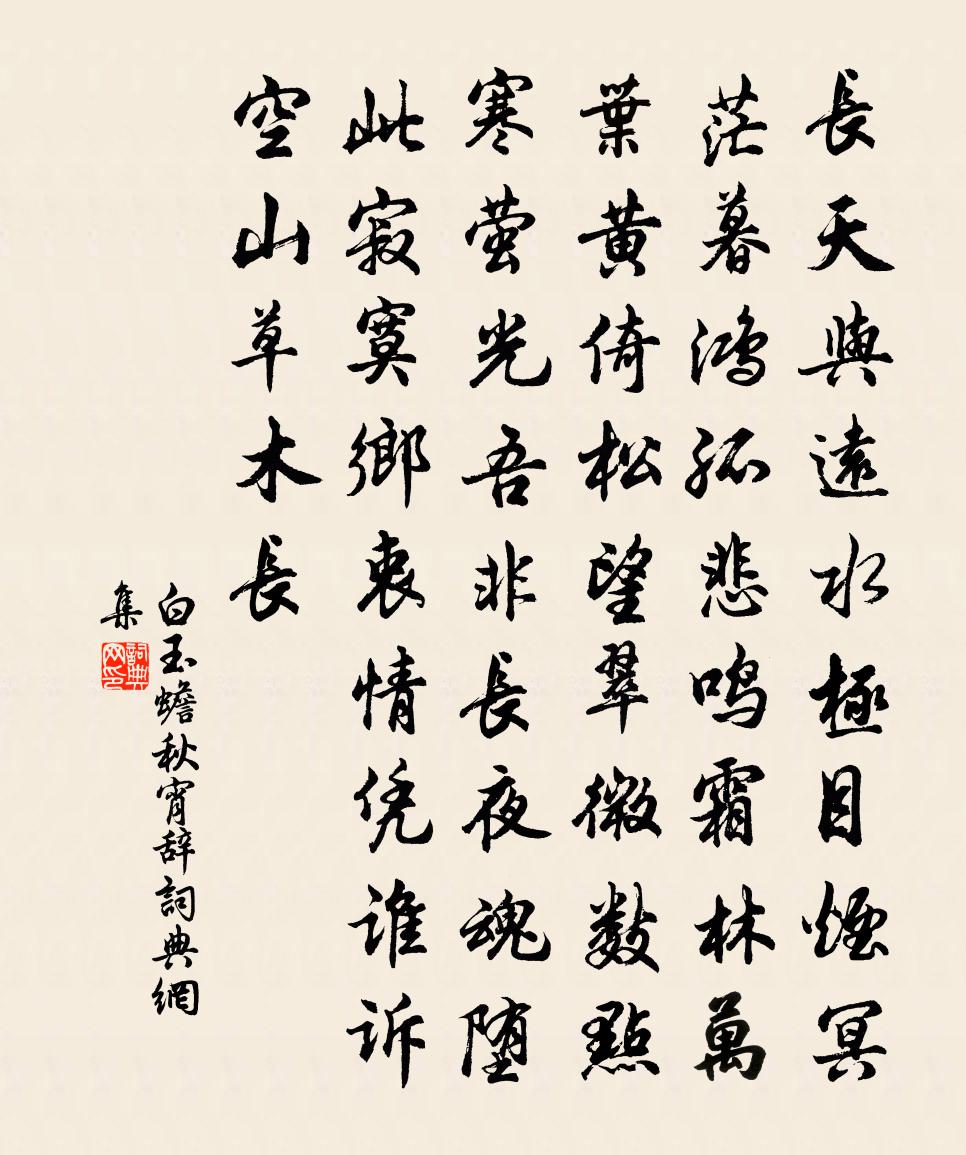 長天與遠水極目煙冥
茫暮鴻孤悲鳴霜林萬
葉黃倚松望翠微數點
寒螢光吾非長夜魂堕
此寂寞鄉衷情凭誰诉
空山草木長
白玉蟾秋宵辞詞典網
集
詞典网印